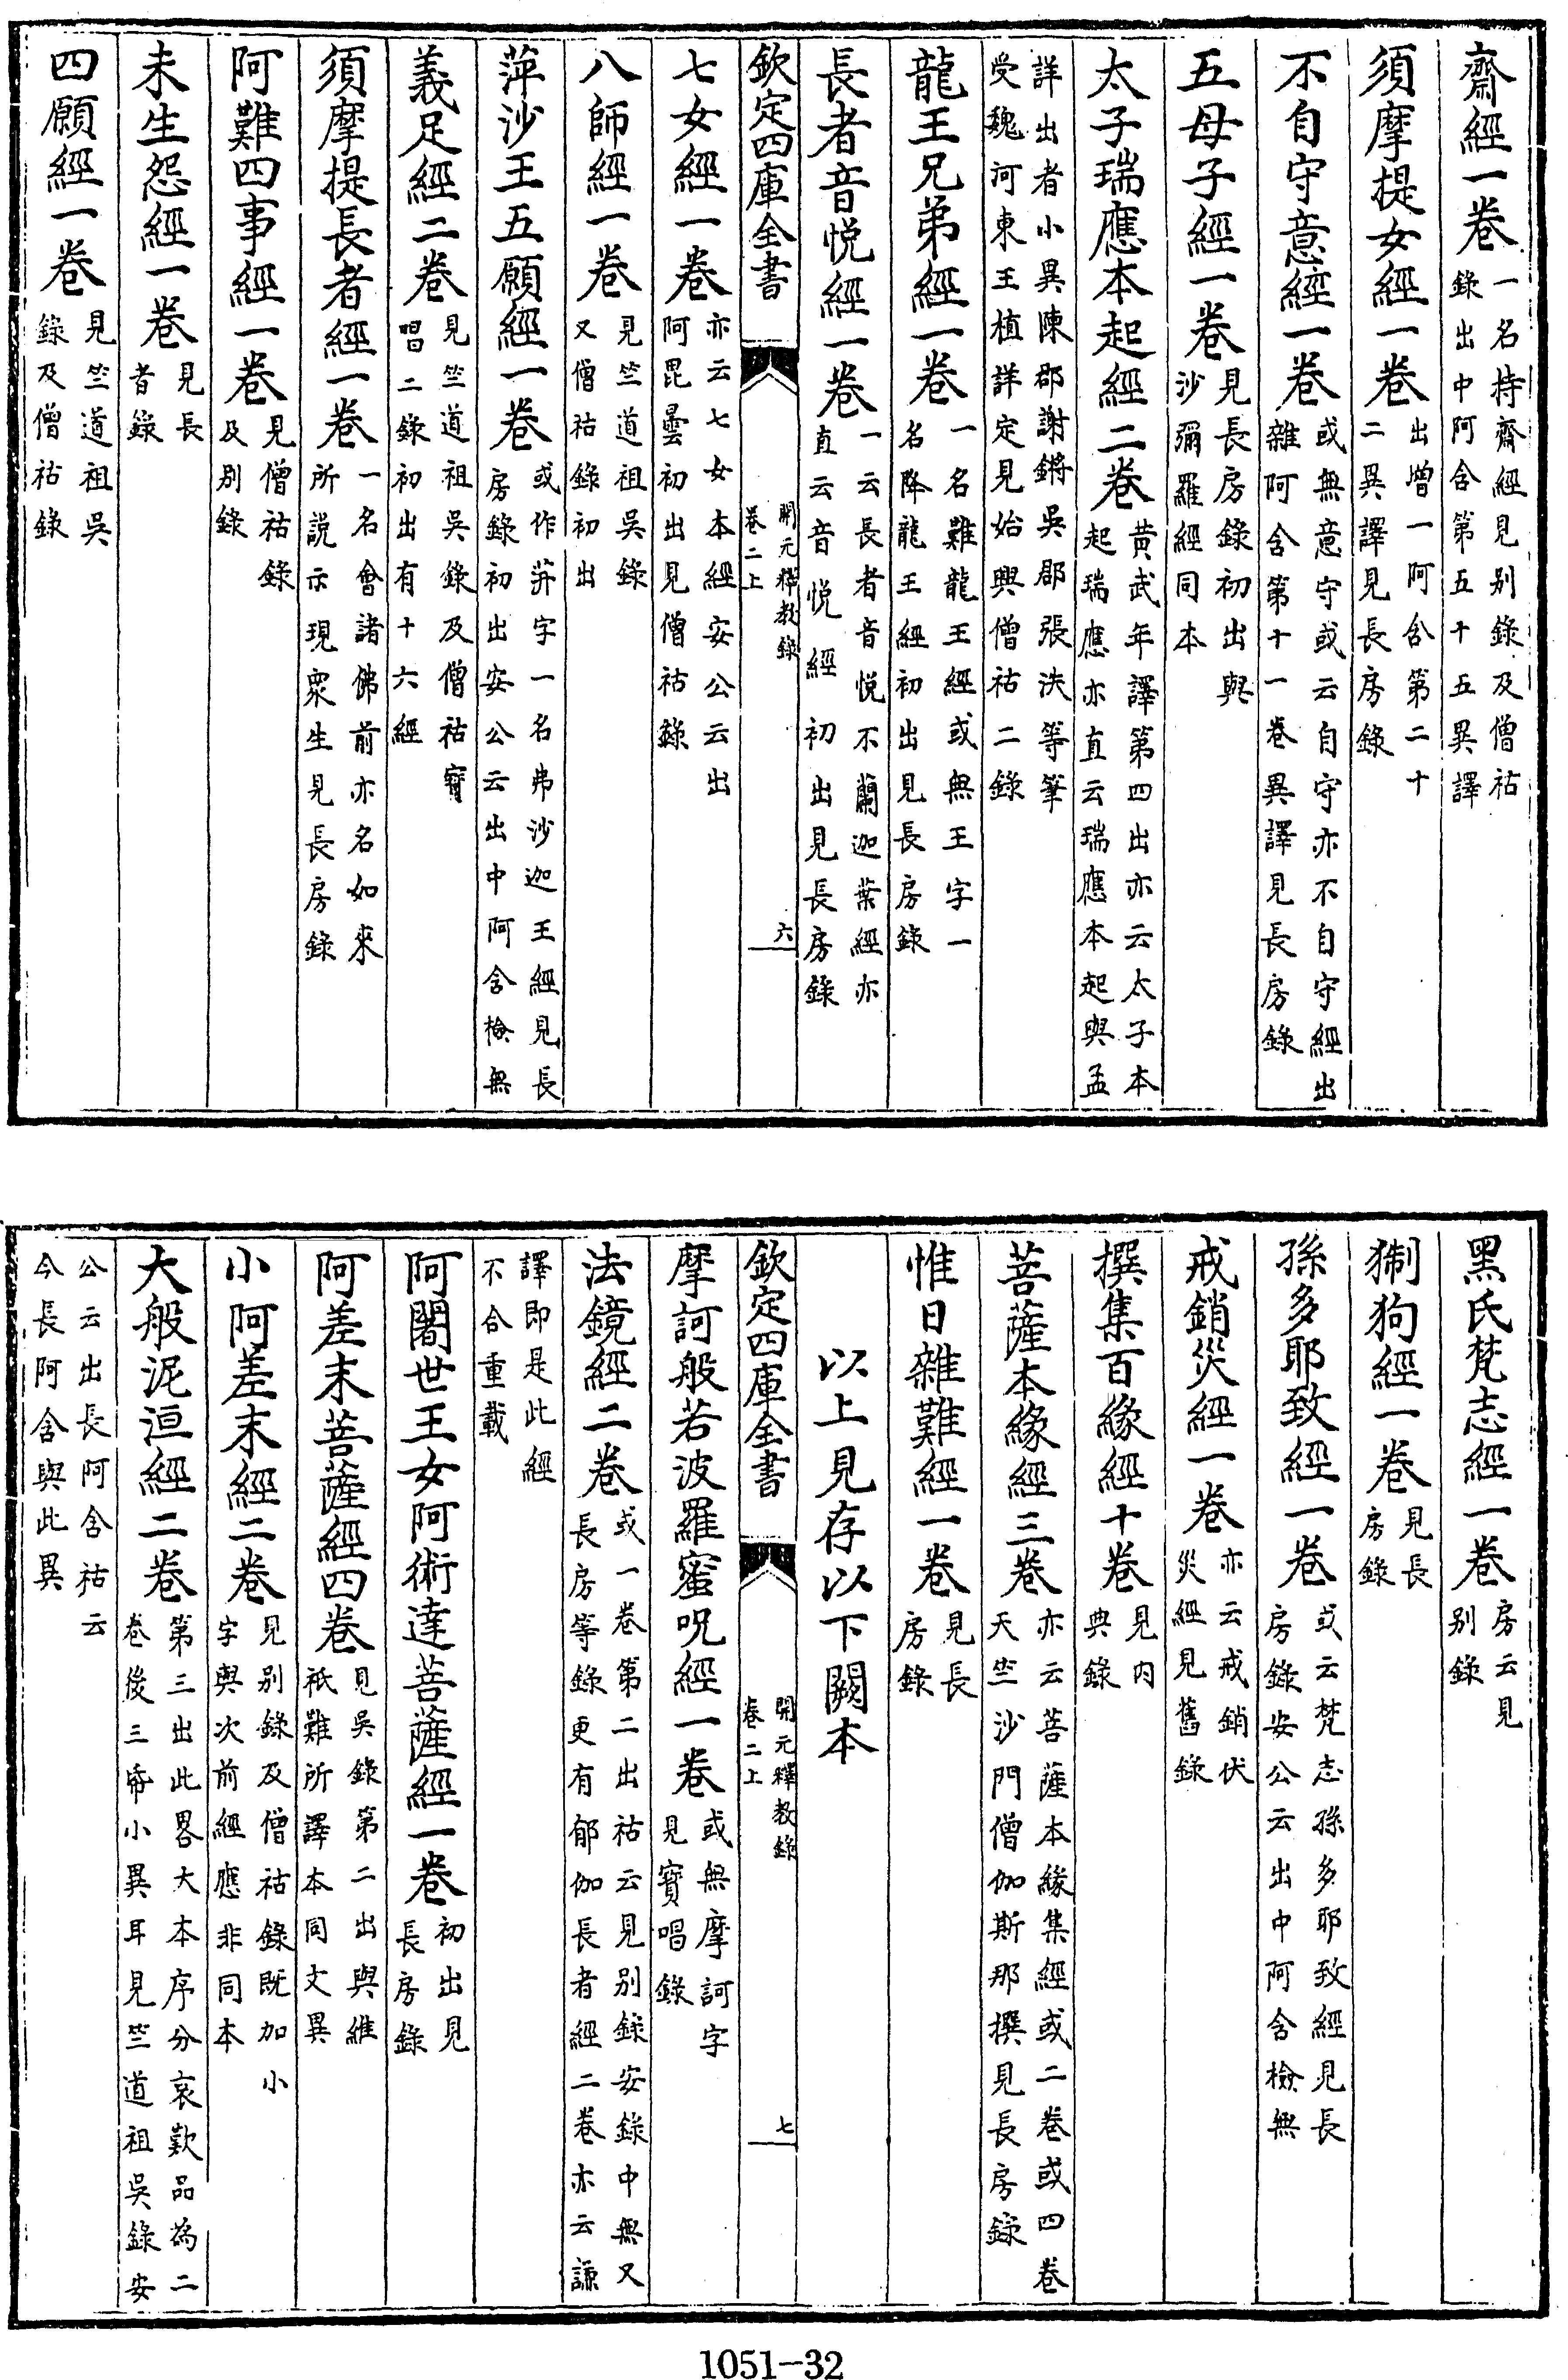 齋經一卷一名持齋經見别錄及僧祐錄出中阿含第五十五異譯
須摩提女經一卷出增一阿含第二十二異譯見長房錄
不自守意經一卷或無意守或云自守亦不自守經出雜阿含第十一卷異譯見長房錄
五母子經一卷見長房錄初出與沙彌羅經同本
太子瑞應本起經二卷黄武年譯第四出亦云太子本起瑞應亦直云瑞應本起與孟
詳出者小異陳郡謝鏘吳郡張洗等筆受魏河東王植詳定見始興僧祐二錄
龍王兄弟經一卷一名難龍王經或無王字一名降龍王經初出見長房錄
長者音悦經一卷一云長者音悦不蘭迦葉經亦直云音悦經初出見長房錄
欽定四庫全書
開元釋教錄卷二上
六
七女經一卷亦云七女本經安公云出阿毘曇初出見僧祐錄
八師經一卷見竺道祖吳錄又僧祐錄初出
萍沙王五願經一卷或作蓱字一名弗沙迦王經見長房錄初出安公云出中阿含檢無
義足經二卷見竺道祖吳錄及僧祐寳唱二錄初出有十六經
須摩提長者經一卷一名會諸佛前亦名如來所說示現衆生見長房錄
阿難四事經一卷見僧祐錄及别錄
未生怨經一卷見長者錄
四願經一卷見竺道祖吳錄及僧祐錄
黑氏梵志經一卷房云見别錄
猘狗經一卷見長房錄
孫多耶致經一卷或云梵志孫多耶致經見長房錄安公云出中阿含檢無
戒銷災經一卷亦云戒銷伏災經見舊錄
撰集百緣經十卷見内典錄
菩薩本緣經三卷亦云菩薩本緣集經或二卷或四卷天竺沙門僧伽斯那撰見長房錄
惟日雜難經一卷見長房錄
以上見存以下闕本
欽定四庫全書
開元釋教錄卷二上
七
摩訶般若波羅蜜呪經一卷或無摩訶字見寳唱錄
法鏡經二卷或一卷第二出祐云見别錄安錄中無又長房等錄更有郁伽長者經二卷亦云謙
譯即是此經不合重載
阿闍世王女阿術達菩薩經一卷初出見長房錄
阿差末菩薩經四卷見吳錄第二出與維祇難所譯本同文異
小阿差末經二卷見别錄及僧祐錄既加小字與次前經應非同本
大般泥洹經二卷第三出此畧大本序分哀歎品為二卷後三紙小異耳見竺道祖吳錄安
公云出長阿含祐云今長阿含與此異
1051-32